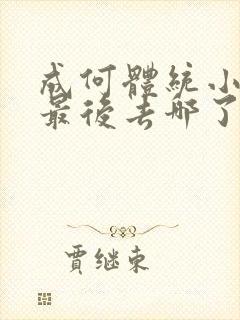 成何體統小
最後去哪了
賈继東